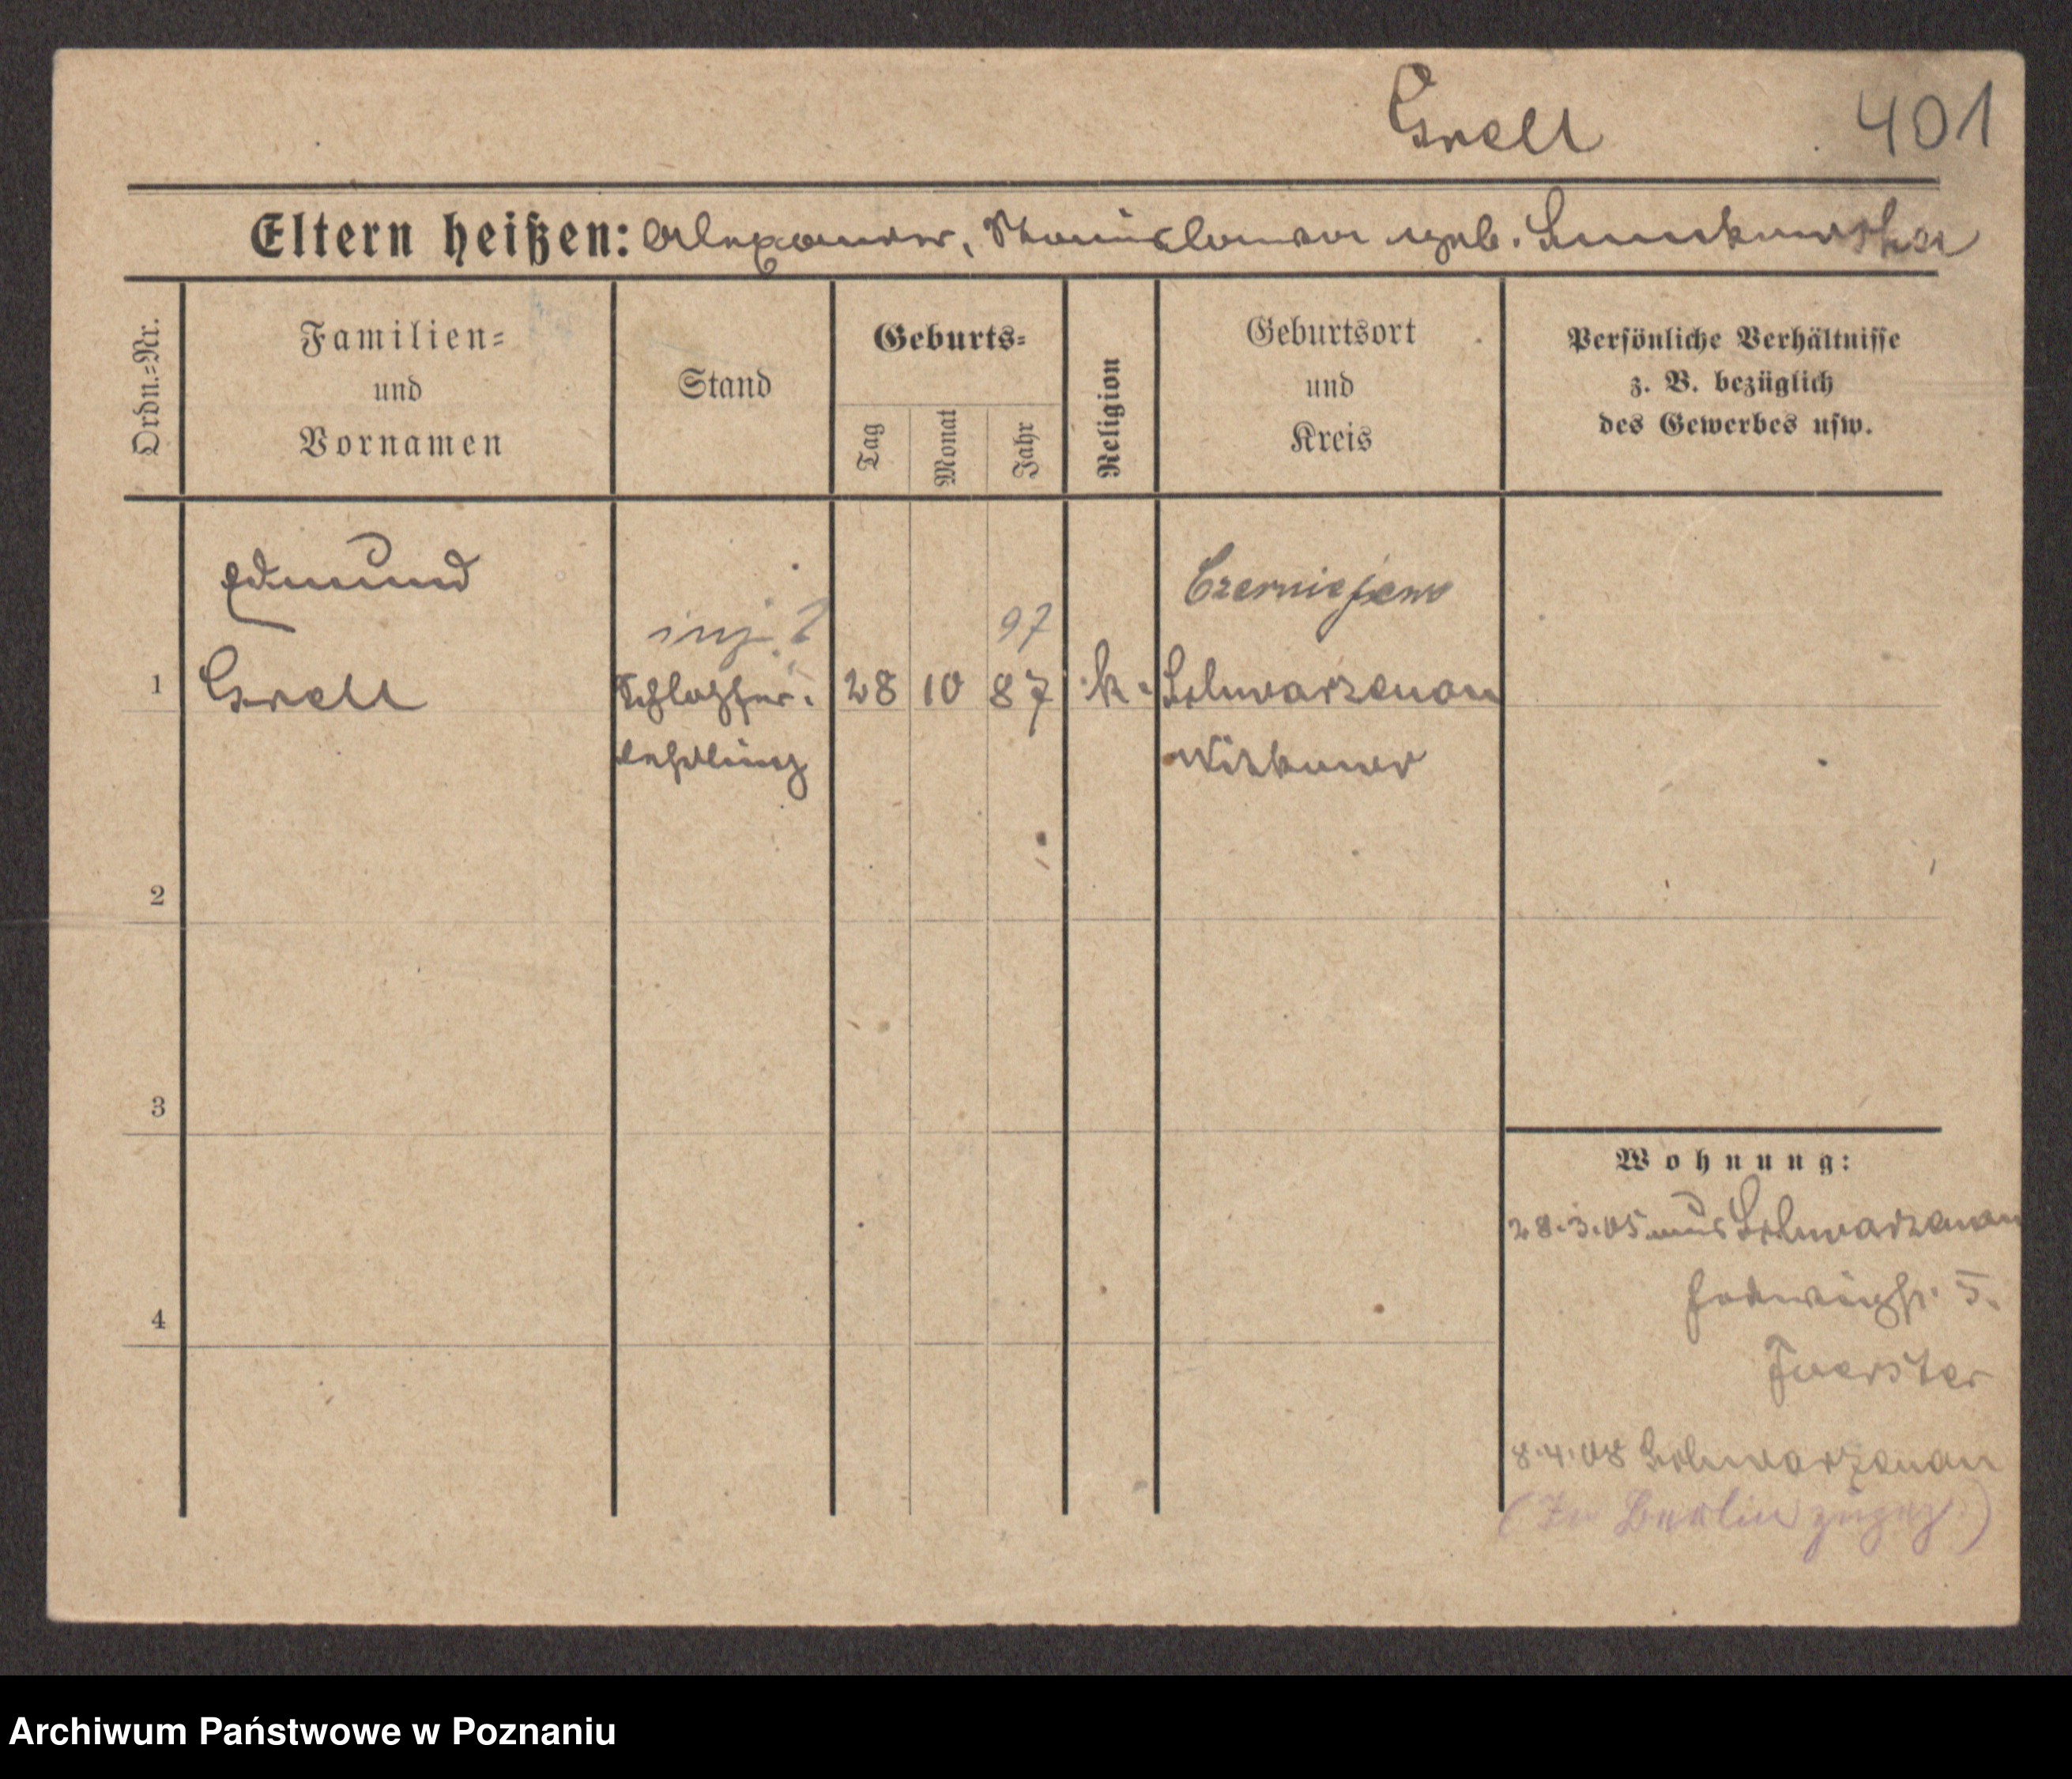 Grell 401
Eltern heißen: Alexander, Stanislawa geb.
Ordn.=Nr.
Familien=
und
Vornamen
Stand
Geburts=
Tag
Monat
Jahr
Religion
Geburtsort
und
Kreis
Persönliche Verhältnisse
z. B. bezüglich
des Gewerbes usw.
Edmund Czerniejewo
inż. ? 97
1 Grell Schlosser. 28 10 87 k. Schwarzenau
lehrling Witkowo
2
3
4
Wohnung:
28.3.05 aus Schwarzenau
Hedwigstr. 5.
Foerster
8.4.08 Schwarzenau
(In Berlin zugez.)
Archiwum Państwowe w Poznaniu